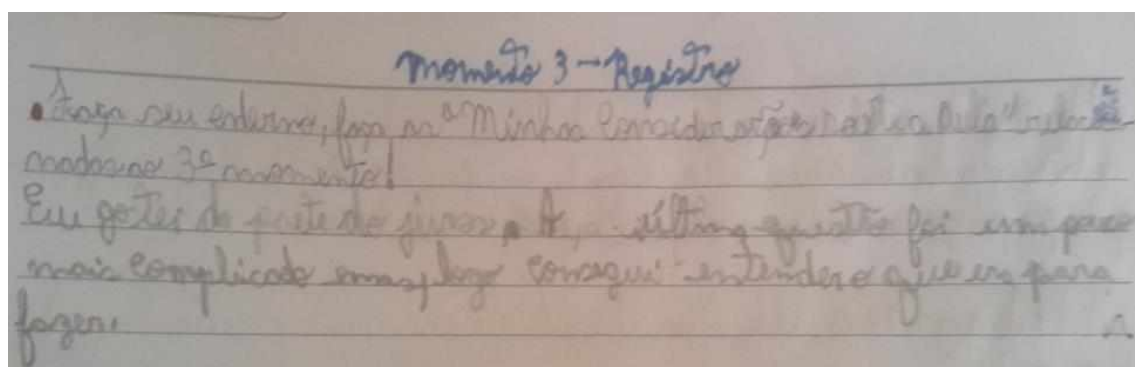 Momento 3 - Registro
seu caderno, faça as "Minhas Considerações
no 3º momento!
Eu gostei da parte de juros, A última questão foi um pouco
mais complicada mas, logo consegui entender o que era para
fazer.